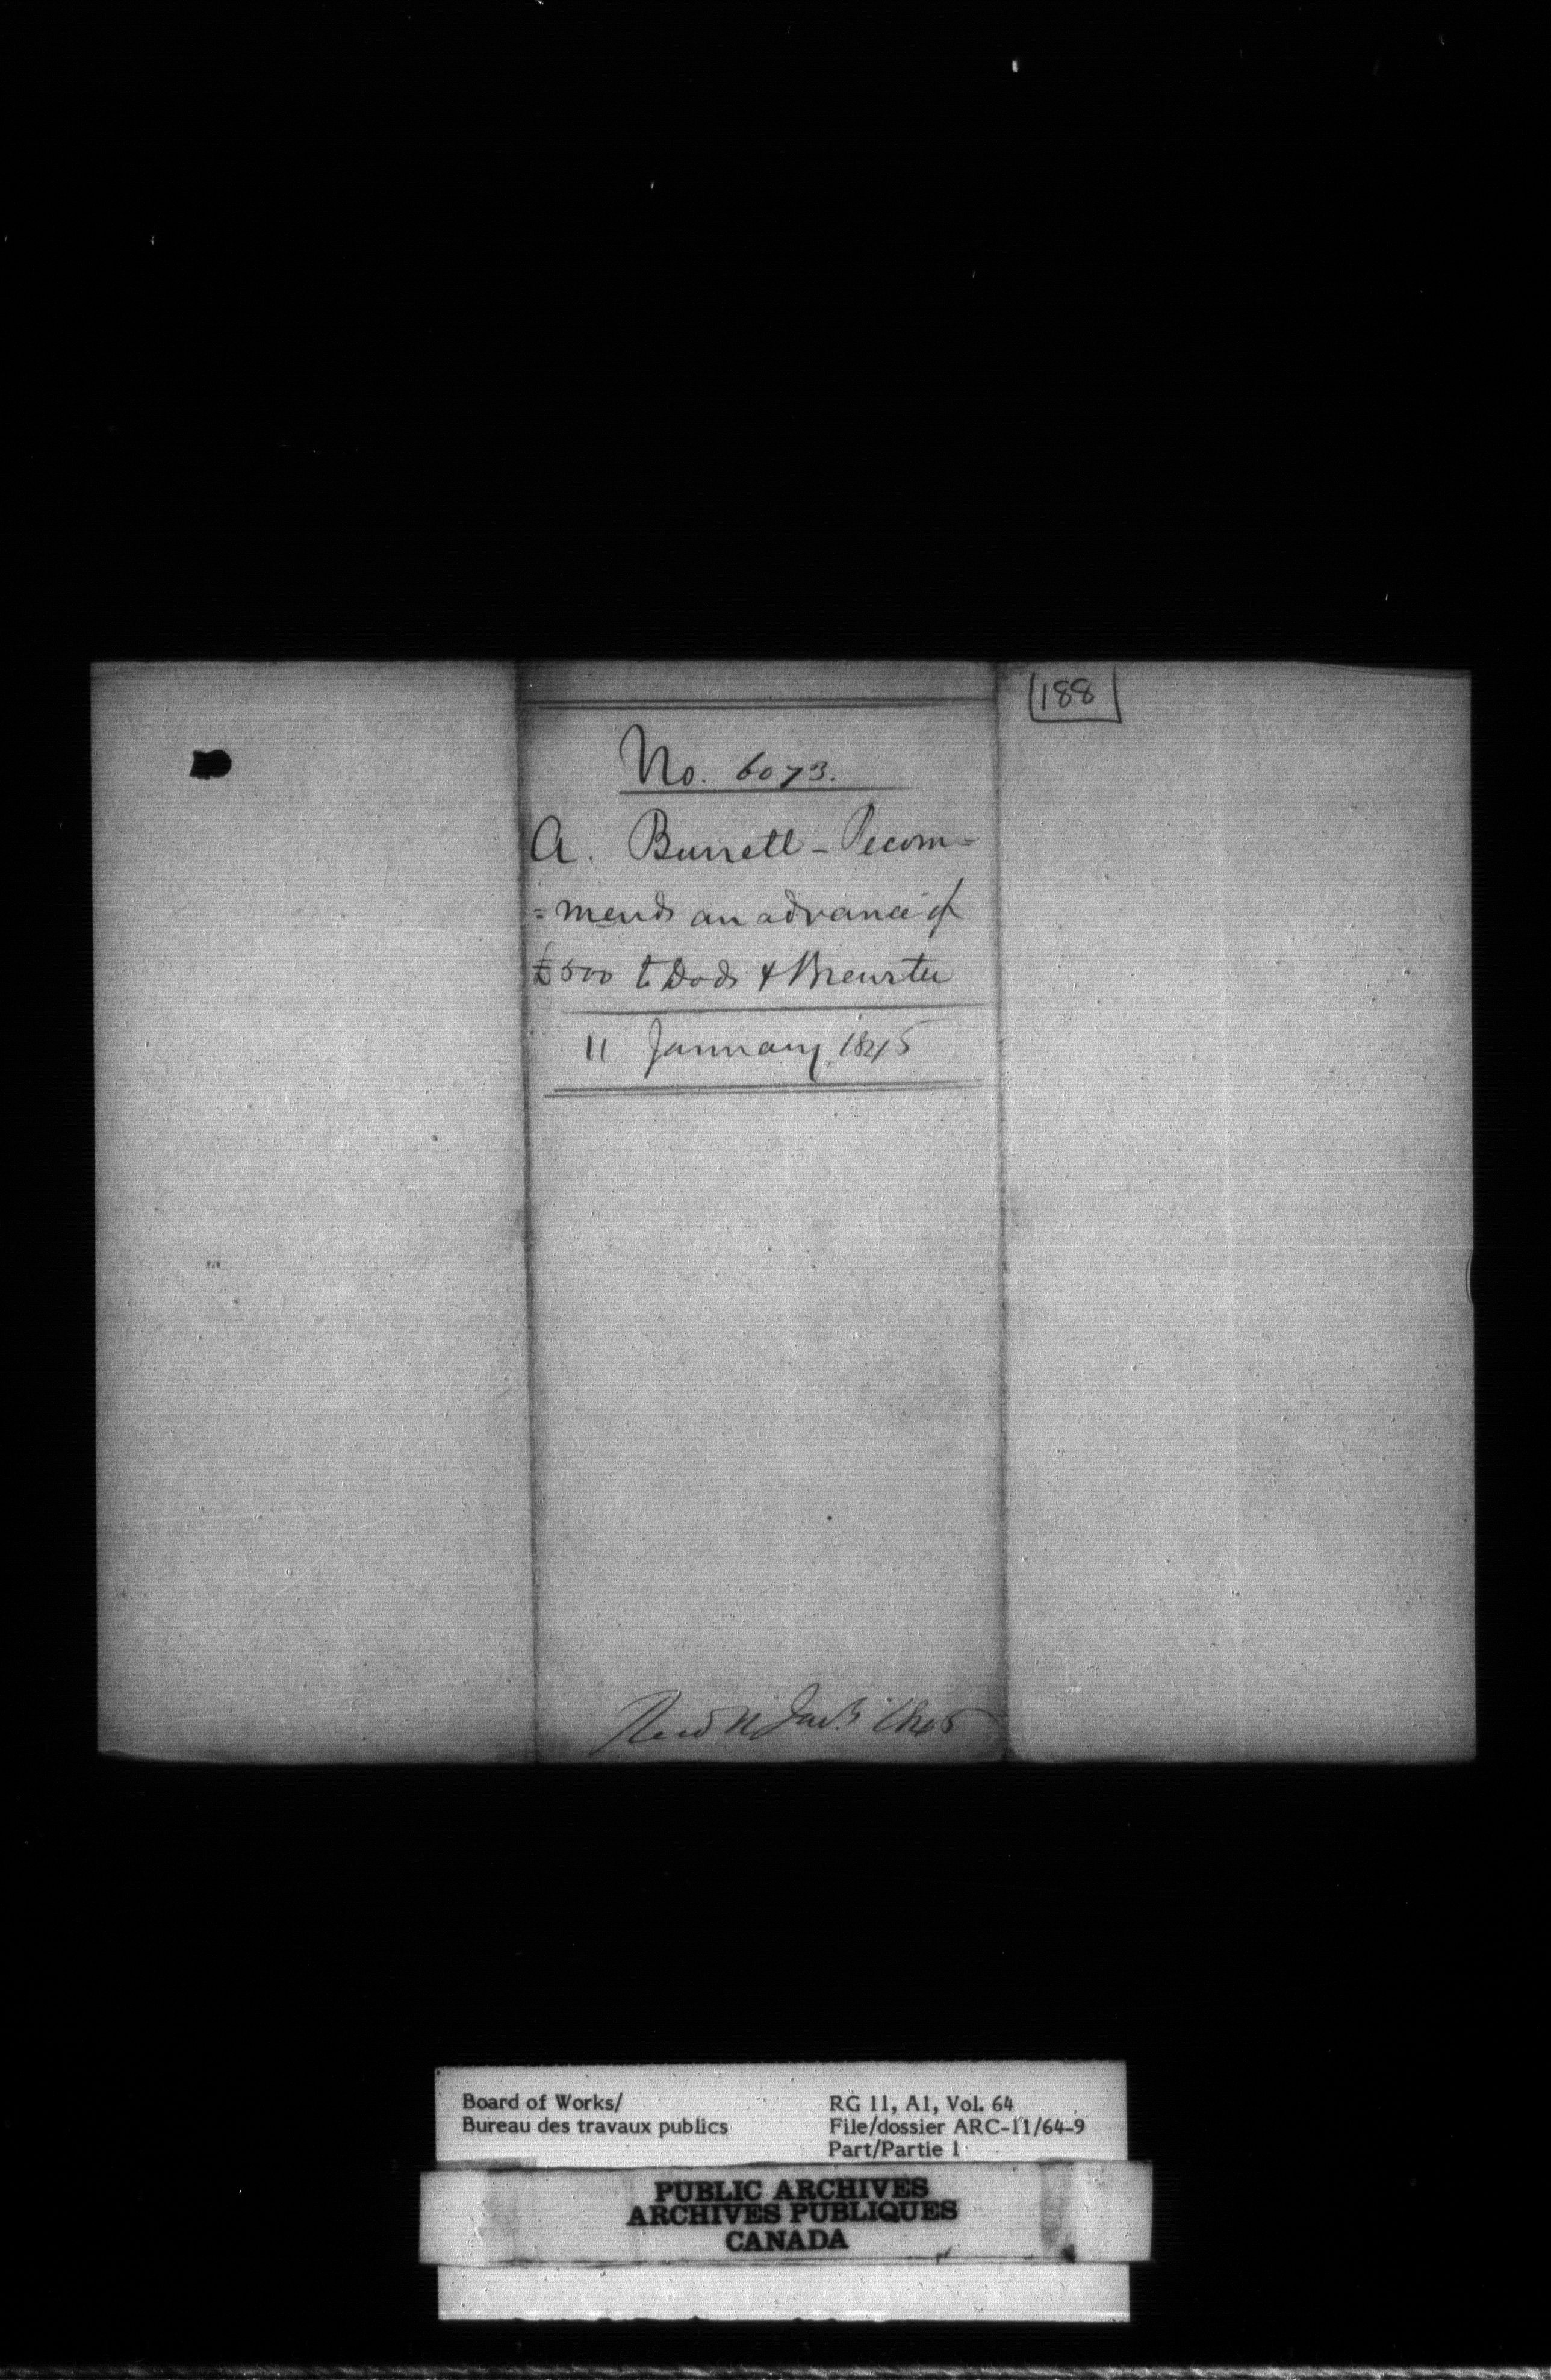 188
No. 6073.
A. Burrett - Recom=
=mends an advance of
£500 to Dods & Brewster
11 January 1845
Recd 11 Jany 1845
Board of Works/
Bureau des travaux publics
RG 11, A1, Vol. 64
File/dossier ARC-11/64-9
Part/Partie 1
PUBLIC ARCHIVES
ARCHIVES PUBLIQUES
CANADA